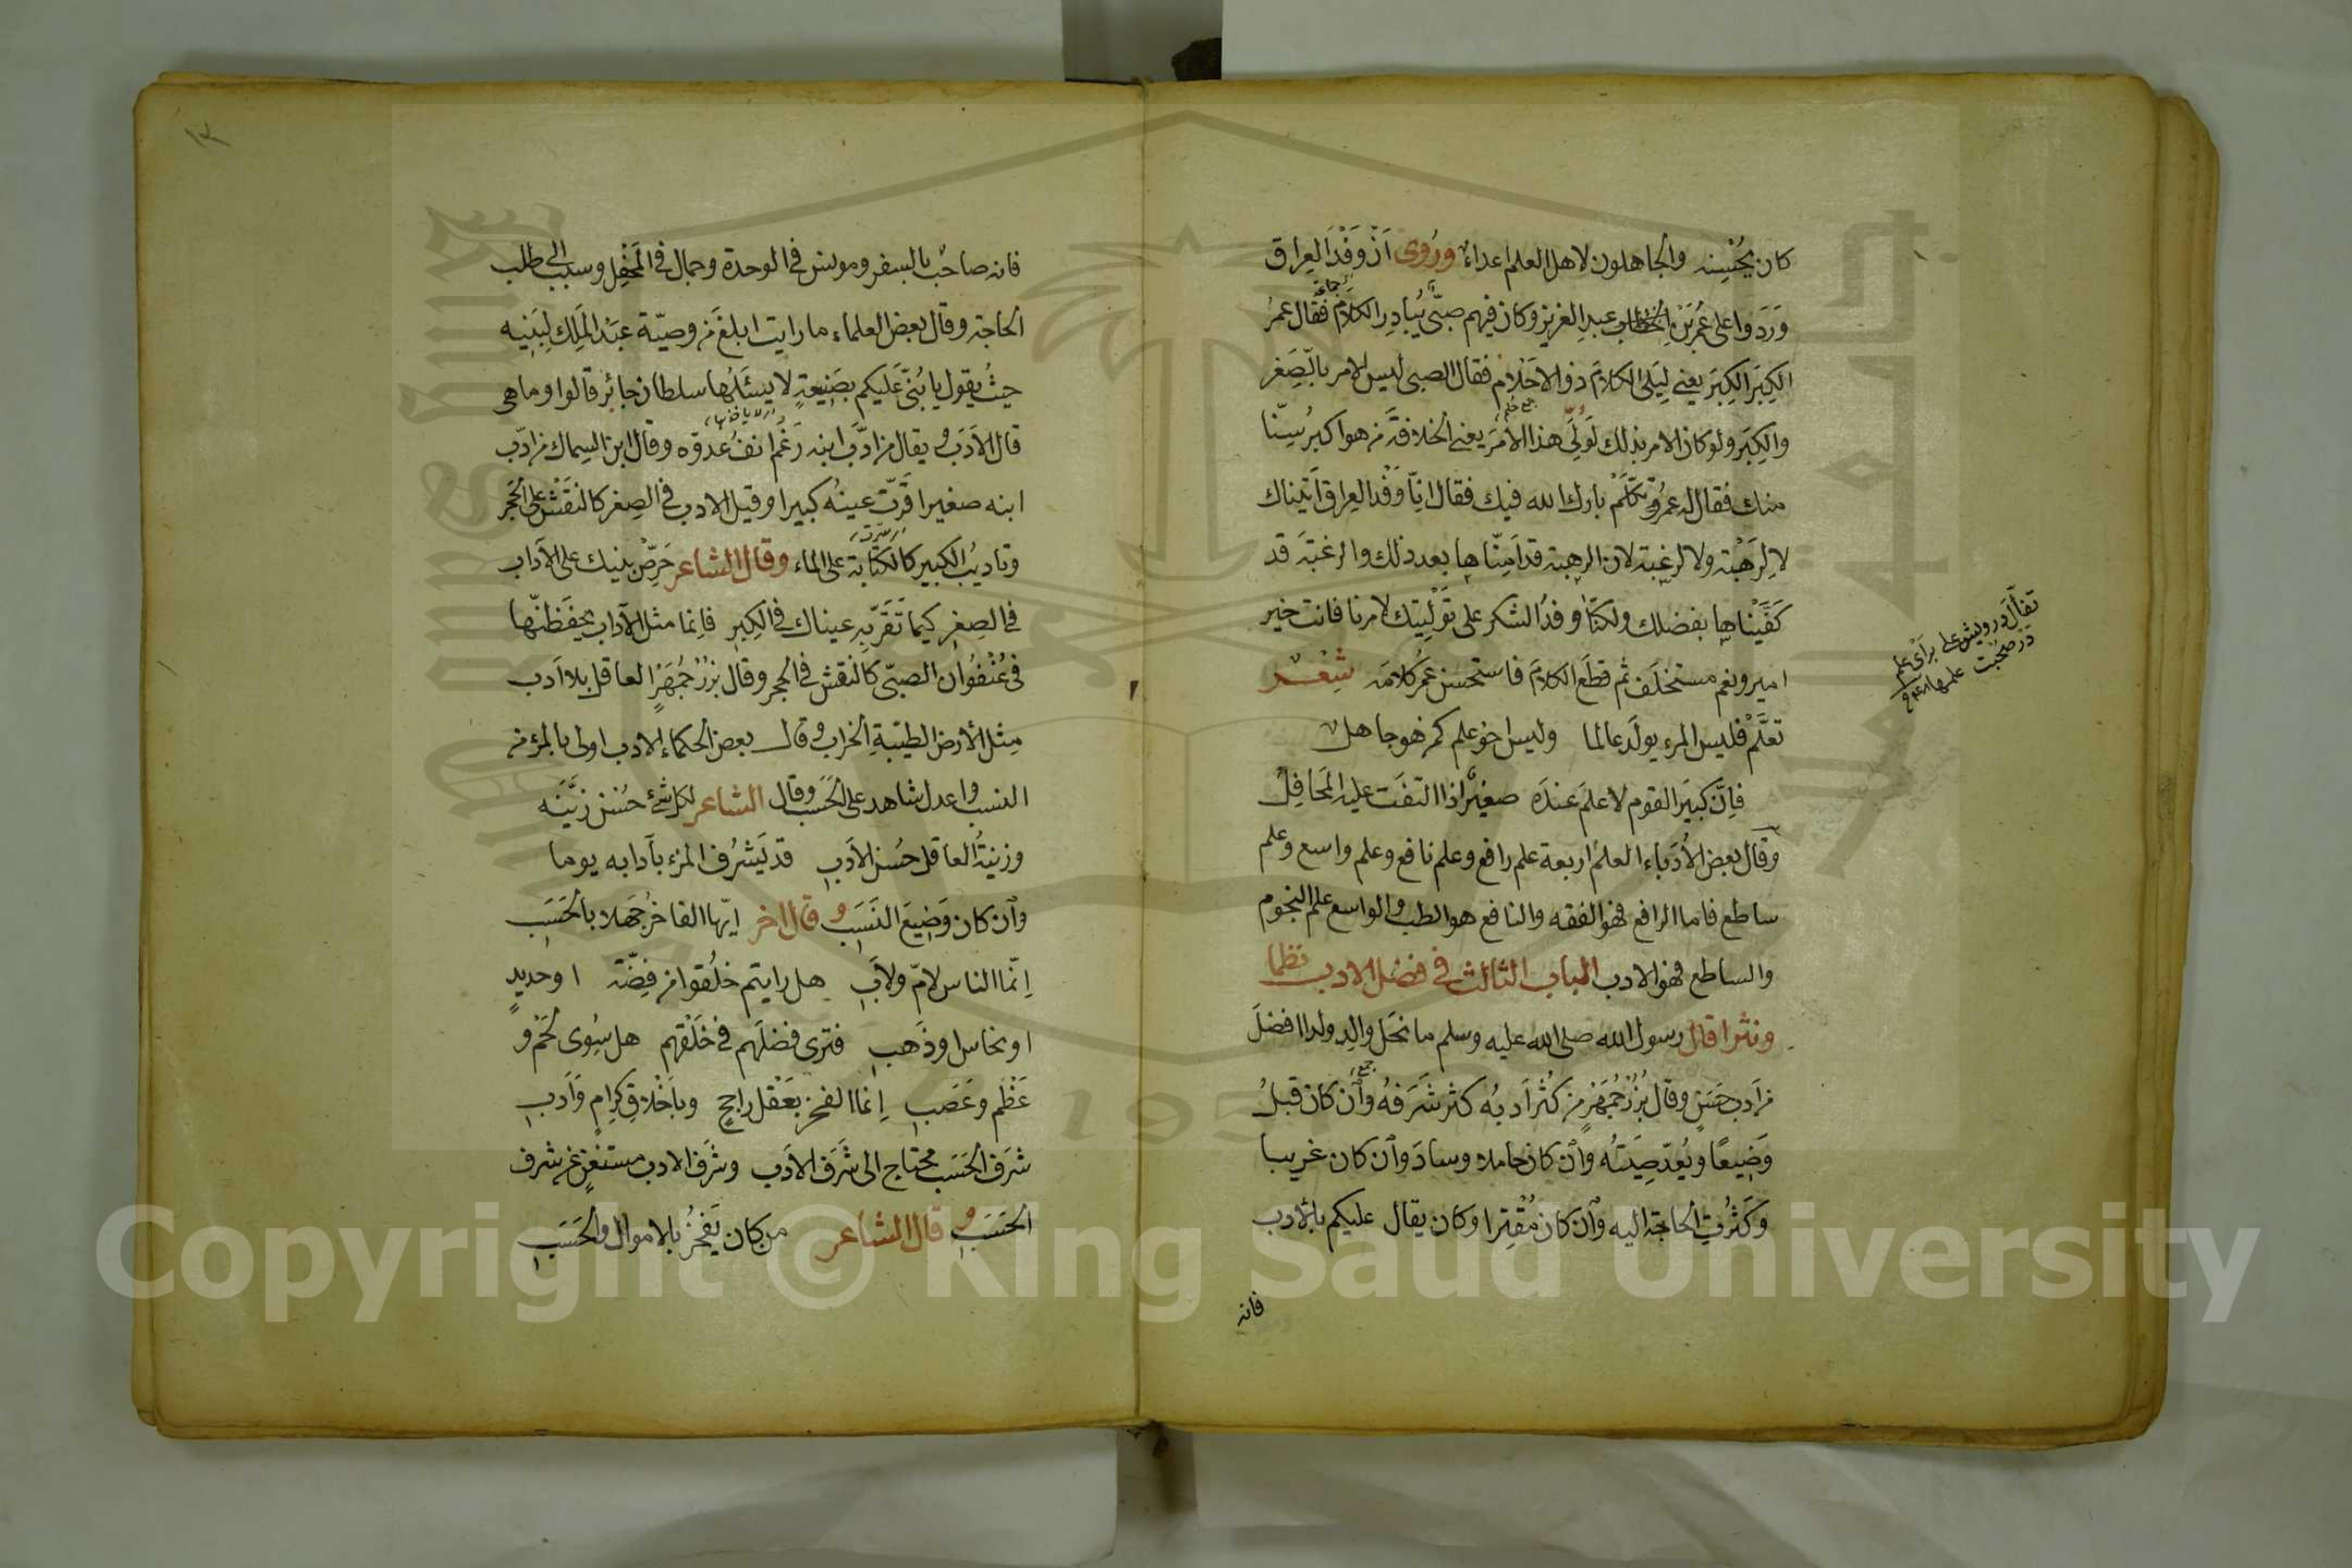 كان يُحْسِنه والجاهلون لاهل العلم اعداءٌ ورُوى اَنّ وَفْدَ العِراق
وَرَدَوا على عُمَر بْن الخطاب عبدِ العزيز وكان فيهم صبىّ يُبادِر الكلامَ فقال عمرُ
الكِبَر الكِبَر يعنى لِيَلى الكلامَ ذوالاحلام فقال الصبى ليس الامر بالصِّغر
والكِبَر ولو كان الامر بذلك لَوَلِىَ هذا الامرَ يعنى الخلافةَ من هو اكبر سِنّا
منك فقال له عمرُ تكلَّمْ بارك الله فيك فقال انّا وَفْد العِراق اَتَيناك
لا لِرَهْبة ولا لرغبة لان الرهبة قد اَمِنّاها بعدد ذلك والرغبةَ قد
كَفَيْناها بفضلك ولكنّا وفدُ الشكر على تَوْلِيَتك لامرنا فانت خير
امير ونعم مستخلَف ثم قطَع الكلامَ فاستحسن عمرُ كلامَه شِعْر
تعلَّمْ فليس المرء يولَد عالما وليس اخو علم كمن هو جاهل
فاِنّ كبيَر القوم لا علمَ عندَه صغيرٌ اذا التفّت عليه المَحافِلُ
وقال بعض الاُدَباء العلمُ اربعة علم رافع وعلم نافع وعلم واسع وعلم
ساطع فاما الرافع فهو الفقه والنافع هو الطب والواسع علم النجوم
والساطع فهو الادب الباب الثالث فى فضل الادب نظما
ونثرا قال رسول الله صلى الله عليه وسلم ما نحَل والِد ولدا افضلَ
من اَدبٍ حَسَنٍ وقال بُزُرْجُمِهَرْ من كثُر اَدبُه كثر شَرَفُهُ واِن كان قبلُ
وَضِيعًا وبَعُدَ صِيَتُه واِن كان خاملا وسادَ واِن كان غريبا
وكَثُرتِ الحاجة اليه واِن كان مُقْتِرا وكان يقال عليكم بالادب
فانه
فانه صاحبٌ بالسفر ومونس فى الوحدة وجمال فى المَحْفِل وسبب الى طلب
الحاجة وقال بعض العلماء ما رايت ابلغَ من وصيّة عَبْد المَلِك لِبَنِيه
حيثُ يقول يا بُنىّ عَلَيكم بصَنِيعةٍ لا يسئَلُها سلطان جائر قالوا وما هى
قال الاَدَب ويقال من ادّبَ ابنه رَغَّمَ انفَ عدوّه وقال ابن السماك من ادّب
ابنه صغيرا قَرّتْ عينُه كبيرا وقيل الادب فى الصِغر كالنَقْش على الحَجَر
وتاديبُ الكبير كالكتابة على الماء وقال الشاعر حَرِّضْ بنيك على الآداب
فى الصِغرِ كيما تَقَرّ بِهِ عيناك فى الكِبرِ فاِنما مثل الآداب تحفظنّها
فى عُنْفُوان الصبىّ كالنقش فى الحجر وقال بُزُرْجُمِهَرْ العاقل بلا اَدب
مِثل الأرض الطيّبةِ الخراب وقال بعض الحكماء الادب اولى بالمرء من
النسب واعدل شاهد على الحَسَب وقال الشاعر لكل شىءٍ حَسَنٍ زِيَنَه
وزينةُ العاقل حُسن الاَدبِ قد يَشرُف المرء بآدابه يوما
واِن كان وَضِيعَ النَسَبِ وقال اخر ايّها الفاخرُ جَهلا بالحَسَب
اِنّما الناس لامّ ولاَبِ هل رايتم خلُقوا من فِضّة او حديدٍ
او نحاس او ذَهبِ فترى فضلَهم فى خَلْقهم هل سِوى لَحْم و
عَظْم وعَصَبِ اِنما الفخر بعَقْل راجِحٍ وباَخْلاقٍ كِرامٍ وَاَدبِ
شَرَف الحَسَب محتاج الى شَرَف الاَدَب وشَرَف الادب مستغنٍ عن شرف
الحَسَبِ وقال الشاعر من كان يَفخَرُ بالاموال والحَسَبِ